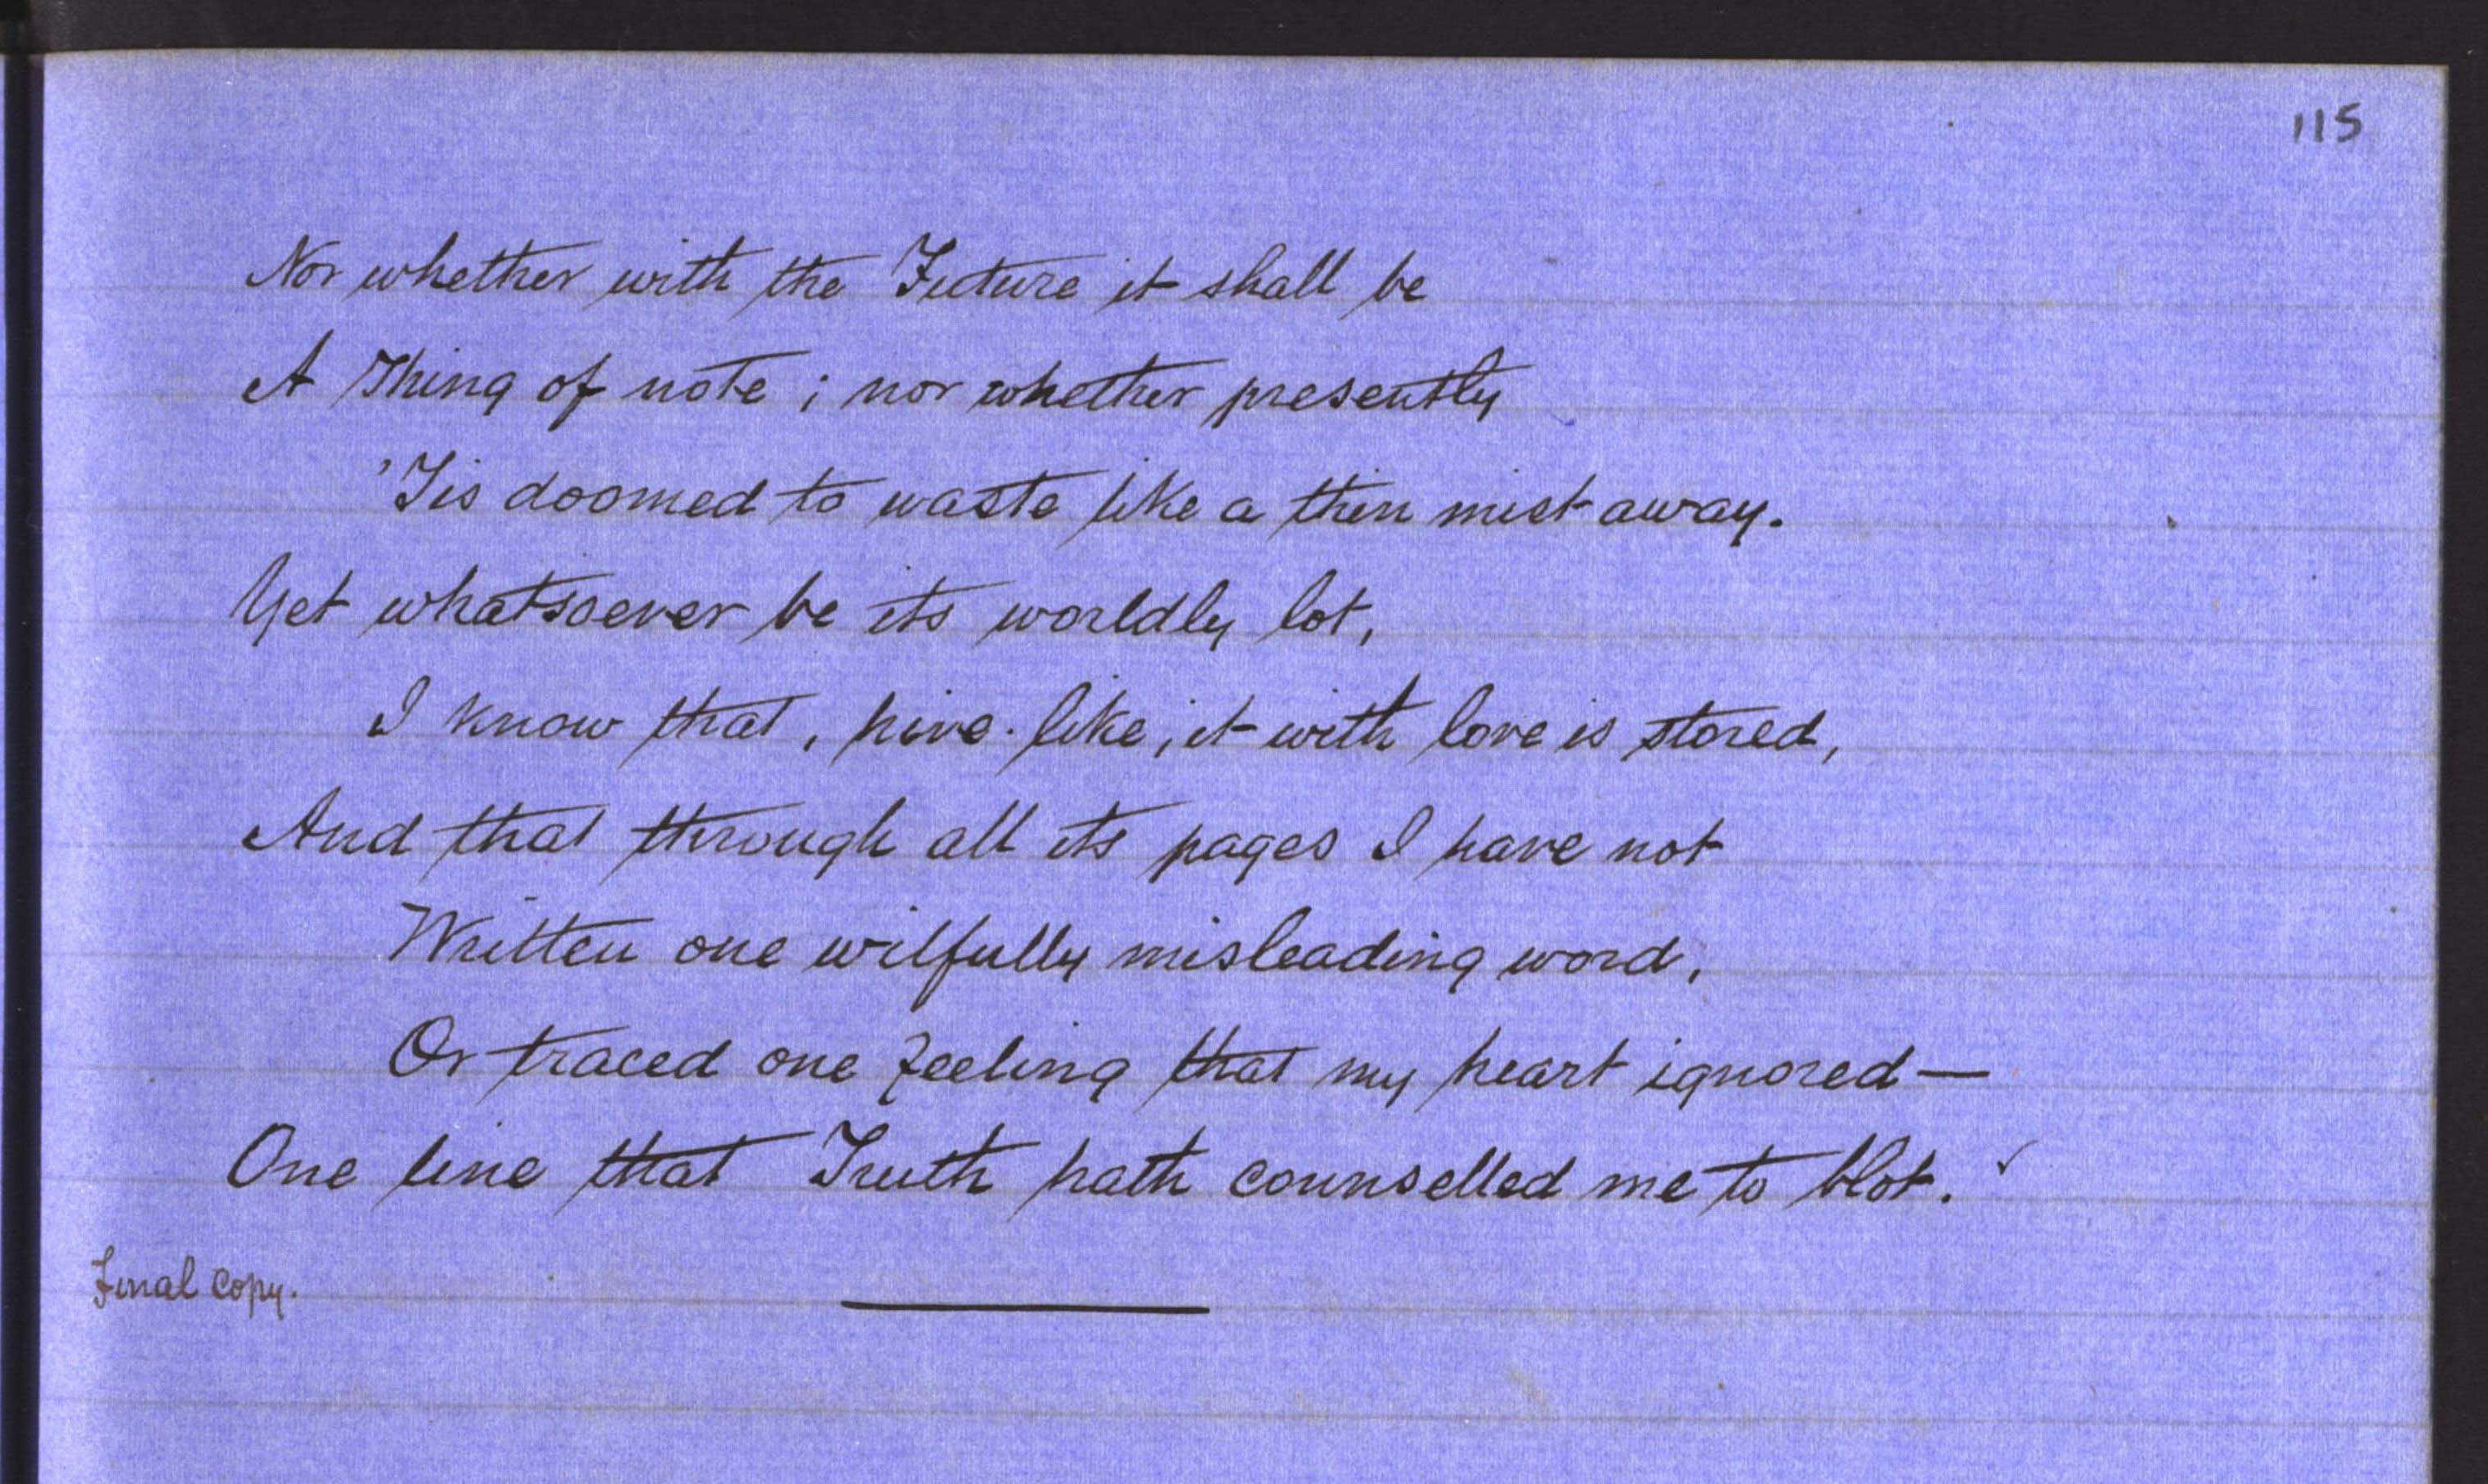 115
Nor whether with the Future it shall be
A Thing of note ; nor whether presently
'Tis doomed to waste like a thin mist away.
Yet whatsoever be its worldly lot,
I know that, hive-like, it with love is stored,
And that through all its pages I have not
Written one wilfully misleading word,
Or traced one feeling that my heart ignored—
One line that Truth hath counselled me to blot. ✓
Final Copy.